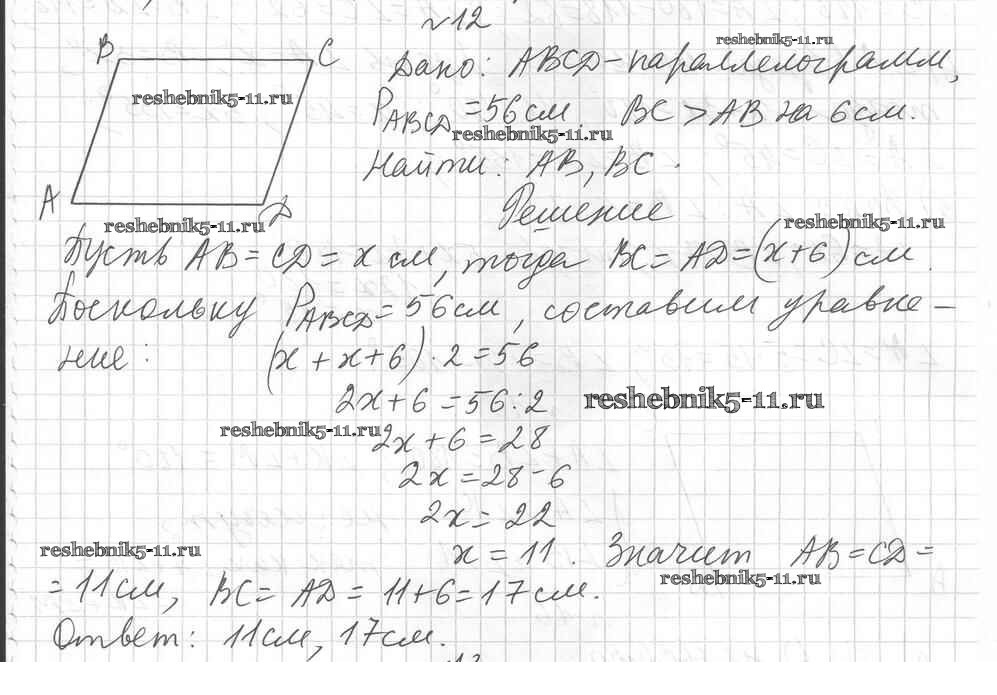 №12
B C
reshebnik5-11.ru
Дано: ABCD-параллелограмм,
reshebnik5-11.ru
P_ABCD = 56 см. BC > AB на 6 см.
reshebnik5-11.ru
Найти: AB, BC.
A D
reshebnik5-11.ru
Решение
reshebnik5-11.ru
Пусть AB = CD = x см, тогда BC = AD = (x+6) см.
Поскольку P_ABCD = 56 см, составим уравне-
ние: (x + x + 6) · 2 = 56
2x + 6 = 56 : 2
reshebnik5-11.ru
reshebnik5-11.ru
2x + 6 = 28
2x = 28 - 6
2x = 22
reshebnik5-11.ru
x = 11. Значит AB = CD =
reshebnik5-11.ru
= 11 см, BC = AD = 11 + 6 = 17 см.
Ответ: 11 см, 17 см.